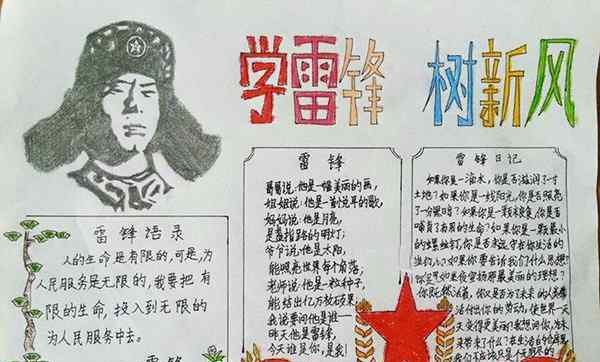 学雷锋 树新风
雷锋语录
人的生命是有限的,可是,为
人民服务是无限的,我要把有
限的生命,投入到无限的
为人民服务中去。
雷锋
雷锋
哥哥说,他是一幅美丽的画,
姐姐说,他是一首悦耳的歌,
妈妈说:他是月亮,
是盏指路的明灯;
爷爷说:他是太阳,
能照亮世界每个角落;
老师说:他是一粒种子,
能结出亿万敖硕果;
我说要问他是谁—
昨天他是雷锋,
今天谁是你,是我!
雷锋日记
如果你是一滴水,你是否滋润了一寸
土地?如果你是一线阳光,你是否照亮
了一分黑暗?如果你是一颗粮食,你是否
哺育了有用的生命?如果你是一颗最小
的螺丝钉,你是否永远守在你生活的
岗位上?如果你要告诉我们什么思想
你是否在日夜宣扬那最美丽的理想?
你既然活着,你又是否为了未来的人类
活付出你的劳动,使世界一天
天变得更美丽?我想问你,为未
来带来了什么?在生活的仓库里